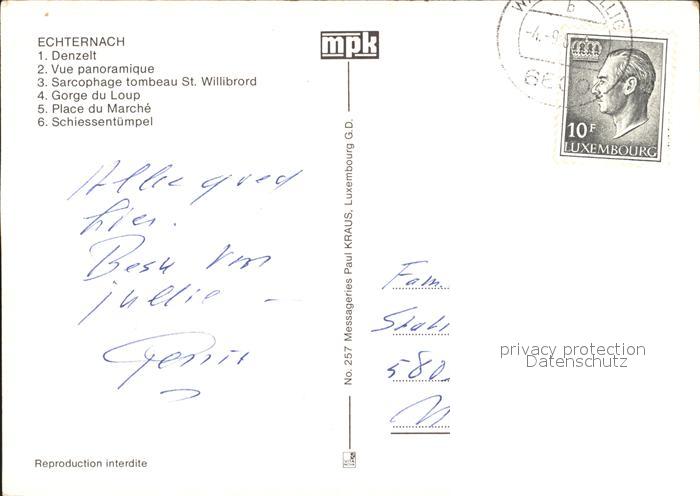 ECHTERNACH
1. Denzelt
2. Vue panoramique
3. Sarcophage tombeau St. Willibrord
4. Gorge du Loup
5. Place du Marché
6. Schiessentümpel
mpk
No. 257 Messageries Paul KRAUS, Luxembourg G.D.
10F
LUXEMBOURG
b
-4.-9.
Alles goed
hier.
van
jullie
Fam.
580
privacy protection
Datenschutz
Reproduction interdite